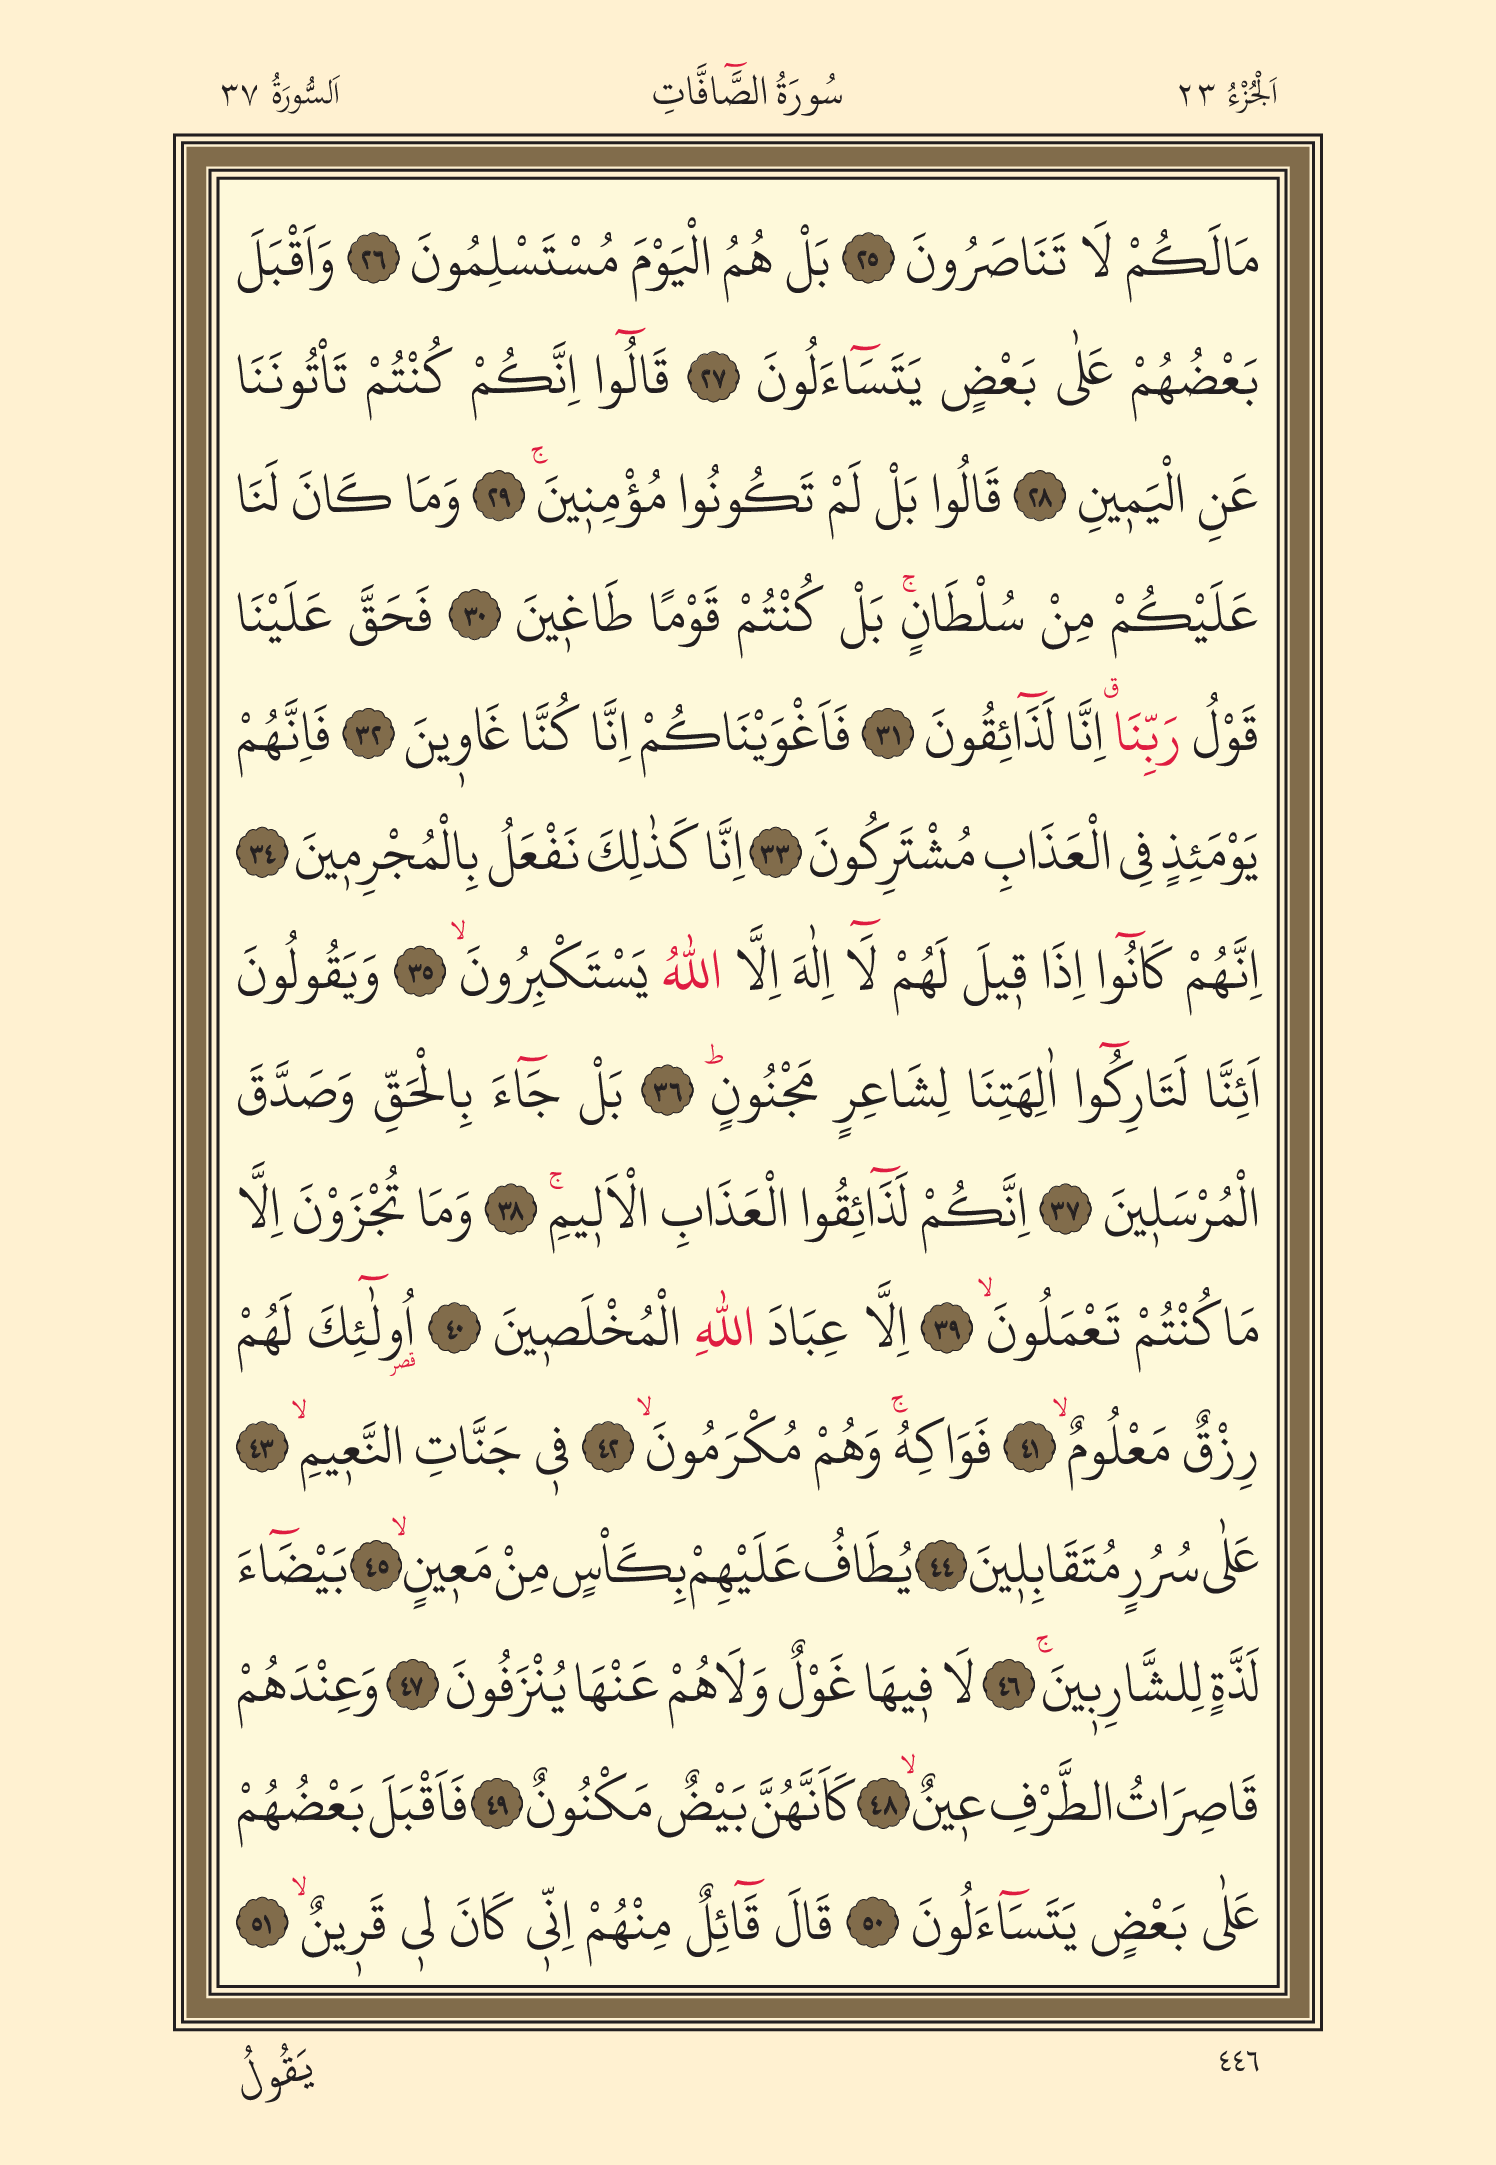 اَلْجُزْءُ ٢٣ سُورَةُ الصَّٓافَّاتِ اَلسُّورَةُ ٣٧
مَالَكُمْ لَا تَنَاصَرُونَ ٢٥ بَلْ هُمُ الْيَوْمَ مُسْتَسْلِمُونَ ٢٦ وَاَقْبَلَ
بَعْضُهُمْ عَلٰى بَعْضٍ يَتَسَٓاءَلُونَ ٢٧ قَالُٓوا اِنَّكُمْ كُنْتُمْ تَأْتُونَنَا
عَنِ الْيَم۪ينِ ٢٨ قَالُوا بَلْ لَمْ تَكُونُوا مُؤْمِن۪ينَۚ ٢٩ وَمَا كَانَ لَنَا
عَلَيْكُمْ مِنْ سُلْطَانٍۚ بَلْ كُنْتُمْ قَوْمًا طَاغ۪ينَ ٣٠ فَحَقَّ عَلَيْنَا
قَوْلُ رَبِّنَاۗ اِنَّا لَذَٓائِقُونَ ٣١ فَاَغْوَيْنَاكُمْ اِنَّا كُنَّا غَاو۪ينَ ٣٢ فَاِنَّهُمْ
يَوْمَئِذٍ فِى الْعَذَابِ مُشْتَرِكُونَ ٣٣ اِنَّا كَذٰلِكَ نَفْعَلُ بِالْمُجْرِم۪ينَ ٣٤
اِنَّهُمْ كَانُٓوا اِذَا ق۪يلَ لَهُمْ لَٓا اِلٰهَ اِلَّا اللّٰهُ يَسْتَكْبِرُونَۙ ٣٥ وَيَقُولُونَ
اَئِنَّا لَتَارِكُٓوا اٰلِهَتِنَا لِشَاعِرٍ مَجْنُونٍۜ ٣٦ بَلْ جَٓاءَ بِالْحَقِّ وَصَدَّقَ
الْمُرْسَل۪ينَ ٣٧ اِنَّكُمْ لَذَٓائِقُوا الْعَذَابِ الْاَل۪يمِۚ ٣٨ وَمَا تُجْزَوْنَ اِلَّا
مَا كُنْتُمْ تَعْمَلُونَۙ ٣٩ اِلَّا عِبَادَ اللّٰهِ الْمُخْلَص۪ينَ ٤٠ اُو۬لٰٓئِكَ لَهُمْ
قصر
رِزْقٌ مَعْلُومٌۙ ٤١ فَوَاكِهُۚ وَهُمْ مُكْرَمُونَۙ ٤٢ ف۪ى جَنَّاتِ النَّع۪يمِۙ ٤٣
عَلٰى سُرُرٍ مُتَقَابِل۪ينَ ٤٤ يُطَافُ عَلَيْهِمْ بِكَأْسٍ مِنْ مَع۪ينٍۙ ٤٥ بَيْضَٓاءَ
لَذَّةٍ لِلشَّارِب۪ينَۚ ٤٦ لَا ف۪يهَا غَوْلٌ وَلَاهُمْ عَنْهَا يُنْزَفُونَ ٤٧ وَعِنْدَهُمْ
قَاصِرَاتُ الطَّرْفِ ع۪ينٌۙ ٤٨ كَاَنَّهُنَّ بَيْضٌ مَكْنُونٌ ٤٩ فَاَقْبَلَ بَعْضُهُمْ
عَلٰى بَعْضٍ يَتَسَٓاءَلُونَ ٥٠ قَالَ قَٓائِلٌ مِنْهُمْ اِنّ۪ى كَانَ ل۪ى قَر۪ينٌۙ ٥١
٤٤٦ يَقُولُ